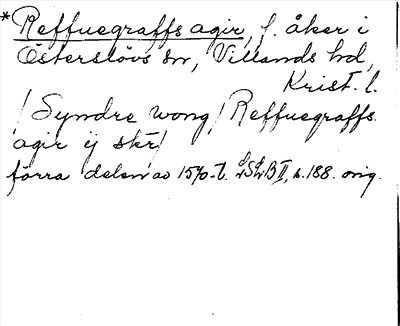 *Reffuegraffs agir, f. åker i
Österslövs sn, Villands hd,
Krist. l.
/Syndre wong/ Reffuegraffs
agir ij skr/
förra delen av 1570-t. LSLB II, s. 188. orig.